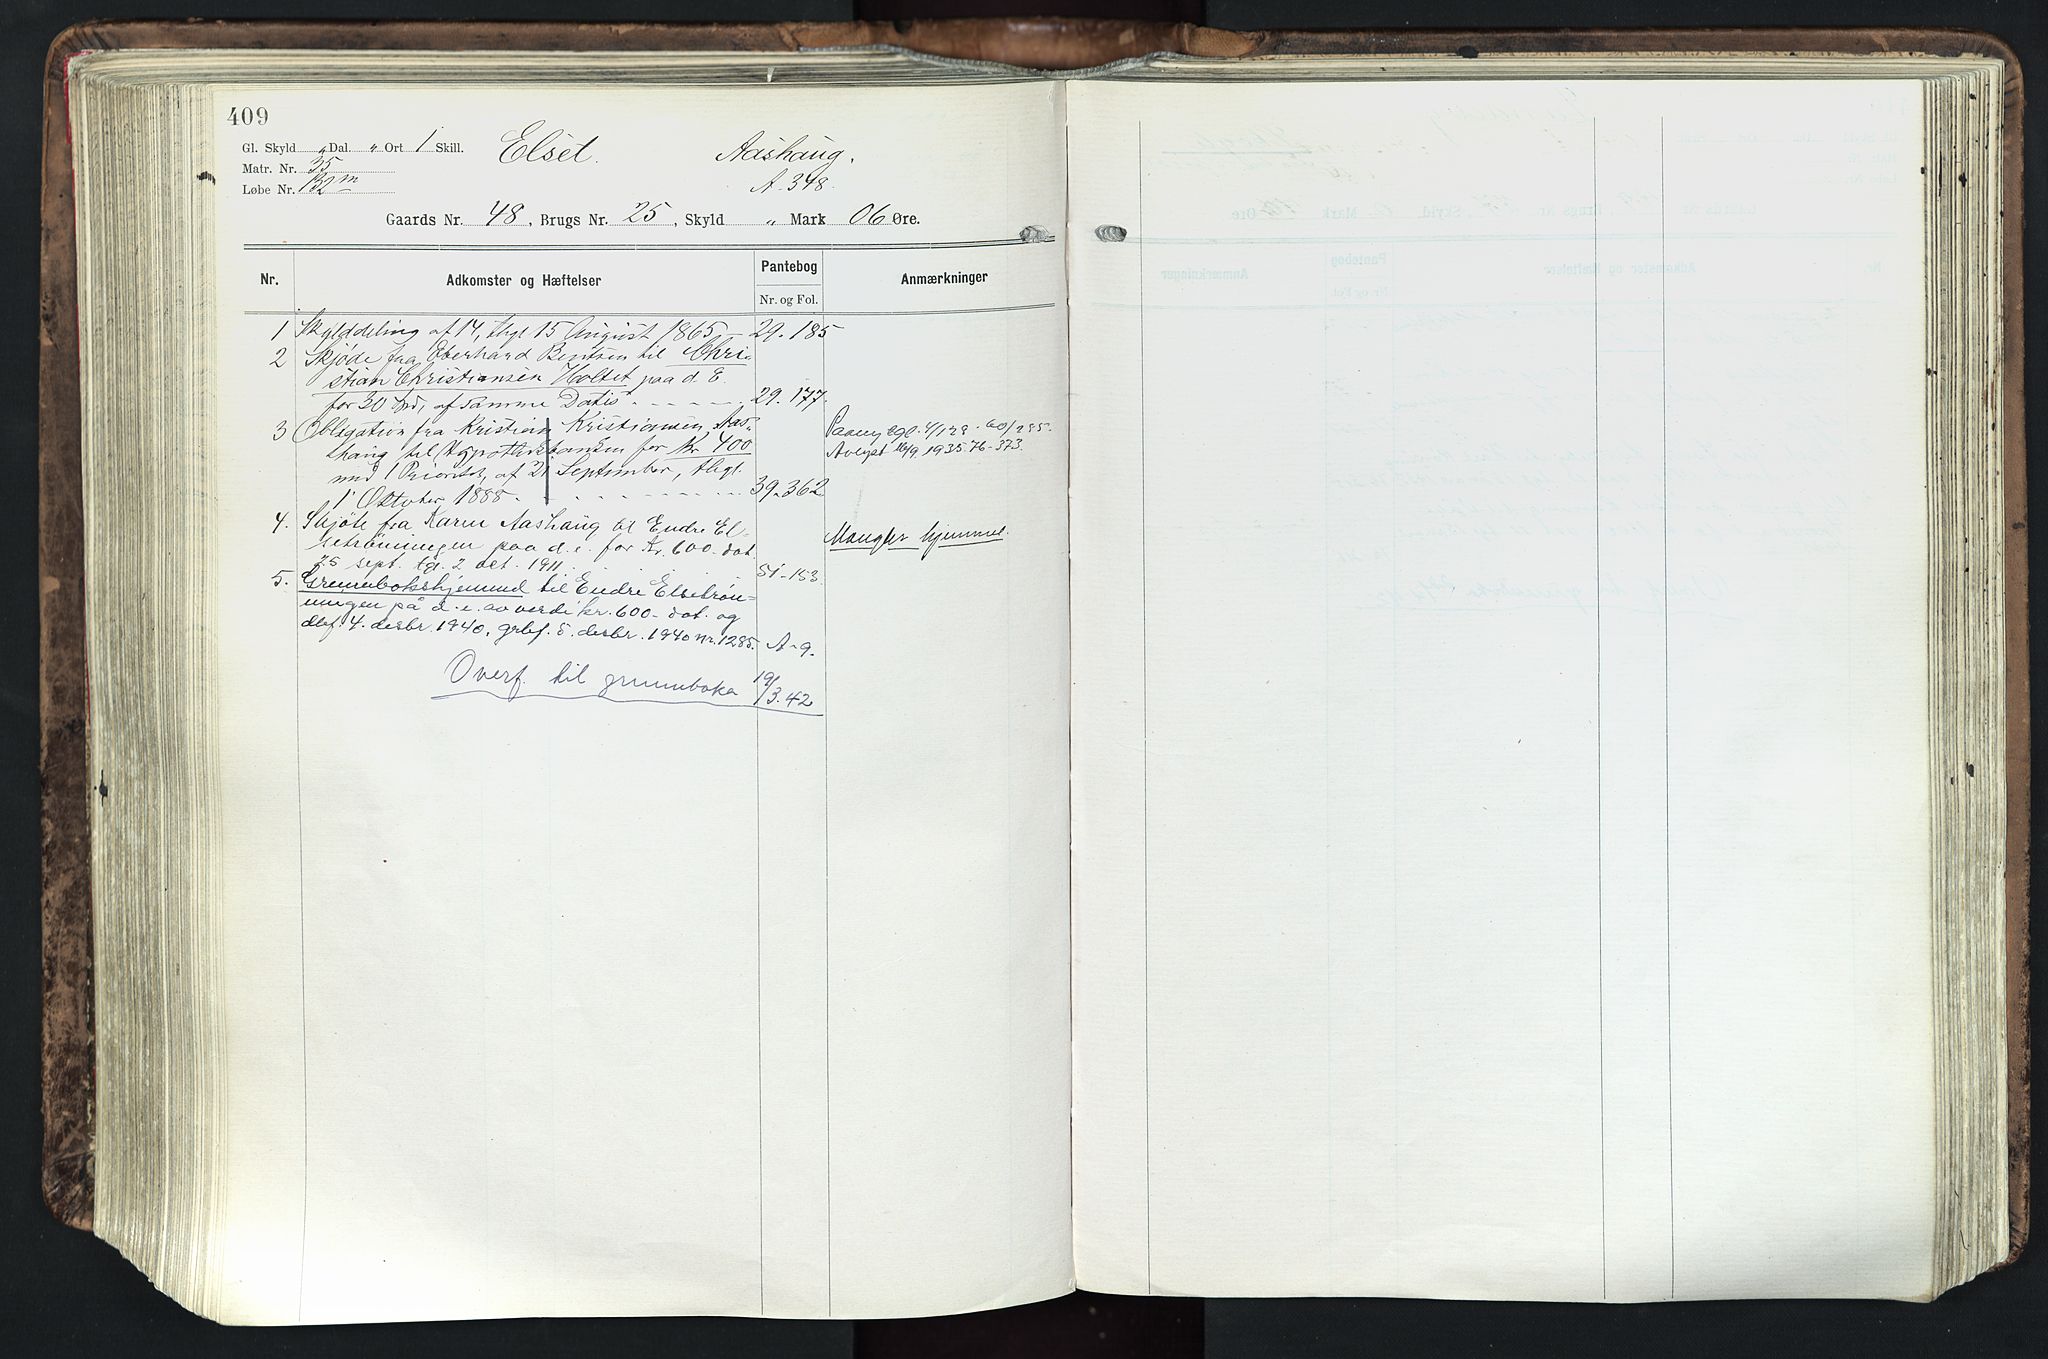 409
Gl. Skyld „ Dal. „ Ort 1 Skill. Elset. Aashaug.
Matr. Nr. 35
Løbe Nr. 132 m A. 348.
Gaards Nr. 48, Brugs Nr. 25, Skyld „ Mark 06 Øre.
Nr. Adkomster og Hæftelser Pantebog Anmærkninger
Nr. og Fol.
1 Skylddeling af 14, thgl 15 August 1865 29.185
2 Skjøde fra Eberhard Bentsen til Chri-
stian Christiansen Holtet paa d. E.
for 30 Spd, af samme Datis 29.177.
3 Obligation fra Kristian Kristiansen Aas-
haug til Hypothekbanken for Kr 400
med 1 Prioritet, af 21 September, thgl.
1 Oktober 1888 39.362
Paany tgl. 4/1 29. 60/285.
Avlyst 16/9. 1935. 76-373.
4. Skjøte fra Karen Aashaug til Endre El-
setrønningen paa d. e. for kr. 600 - dat.
25 sept. tg. 2 okt. 1911. 51-153
Mangler hjemmel.
5. Grunnbokshjemmel til Endre Elsetrøn-
ningen på d. e. av verdi kr. 600 - dat. og
dbf. 4. desbr. 1940, grbf. 5. desbr. 1940 nr. 1285. A-9.
Overf. til grunnboka 19/3.42